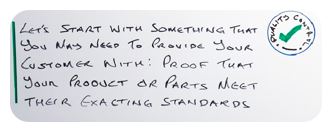 LET'S START WITH SOMETHING THAT
YOU MAY NEED TO PROVIDE YOUR
CUSTOMER WITH: PROOF THAT
YOUR PRODUCT OR PARTS MEET
THEIR EXACTING STANDARDS
QUALITY CONTROL